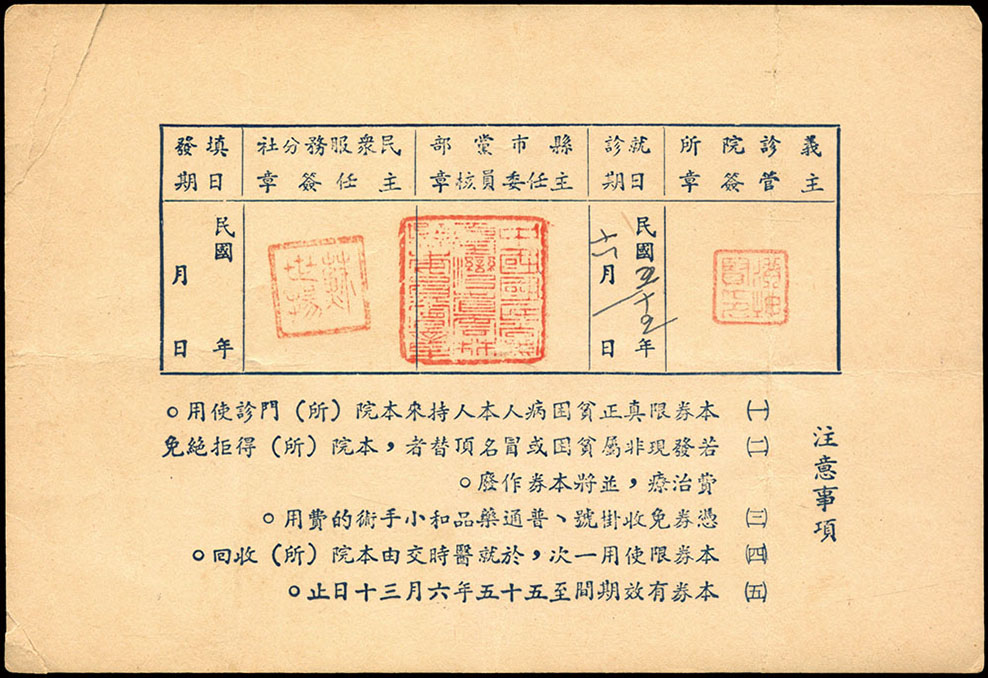 義診院所
主管簽章
就診
日期
縣市黨部
主任委員核章
民衆服務分社
主任簽章
填發
日期
民國 年
月 日
蘇
世揚
民國 年
月 日
注意事項
㈠ 本券限真正貧困病人本人持來本院(所)門診使用。
㈡ 若發現非屬貧困或冒名頂替者，本院(所)得拒絕免
費治療，並將本券作廢。
㈢ 憑券免收掛號、普通藥品和小手術的費用。
㈣ 本券限使用一次，於就醫時交由本院(所)收回。
㈤ 本券有效期間至五十五年六月三十日止。